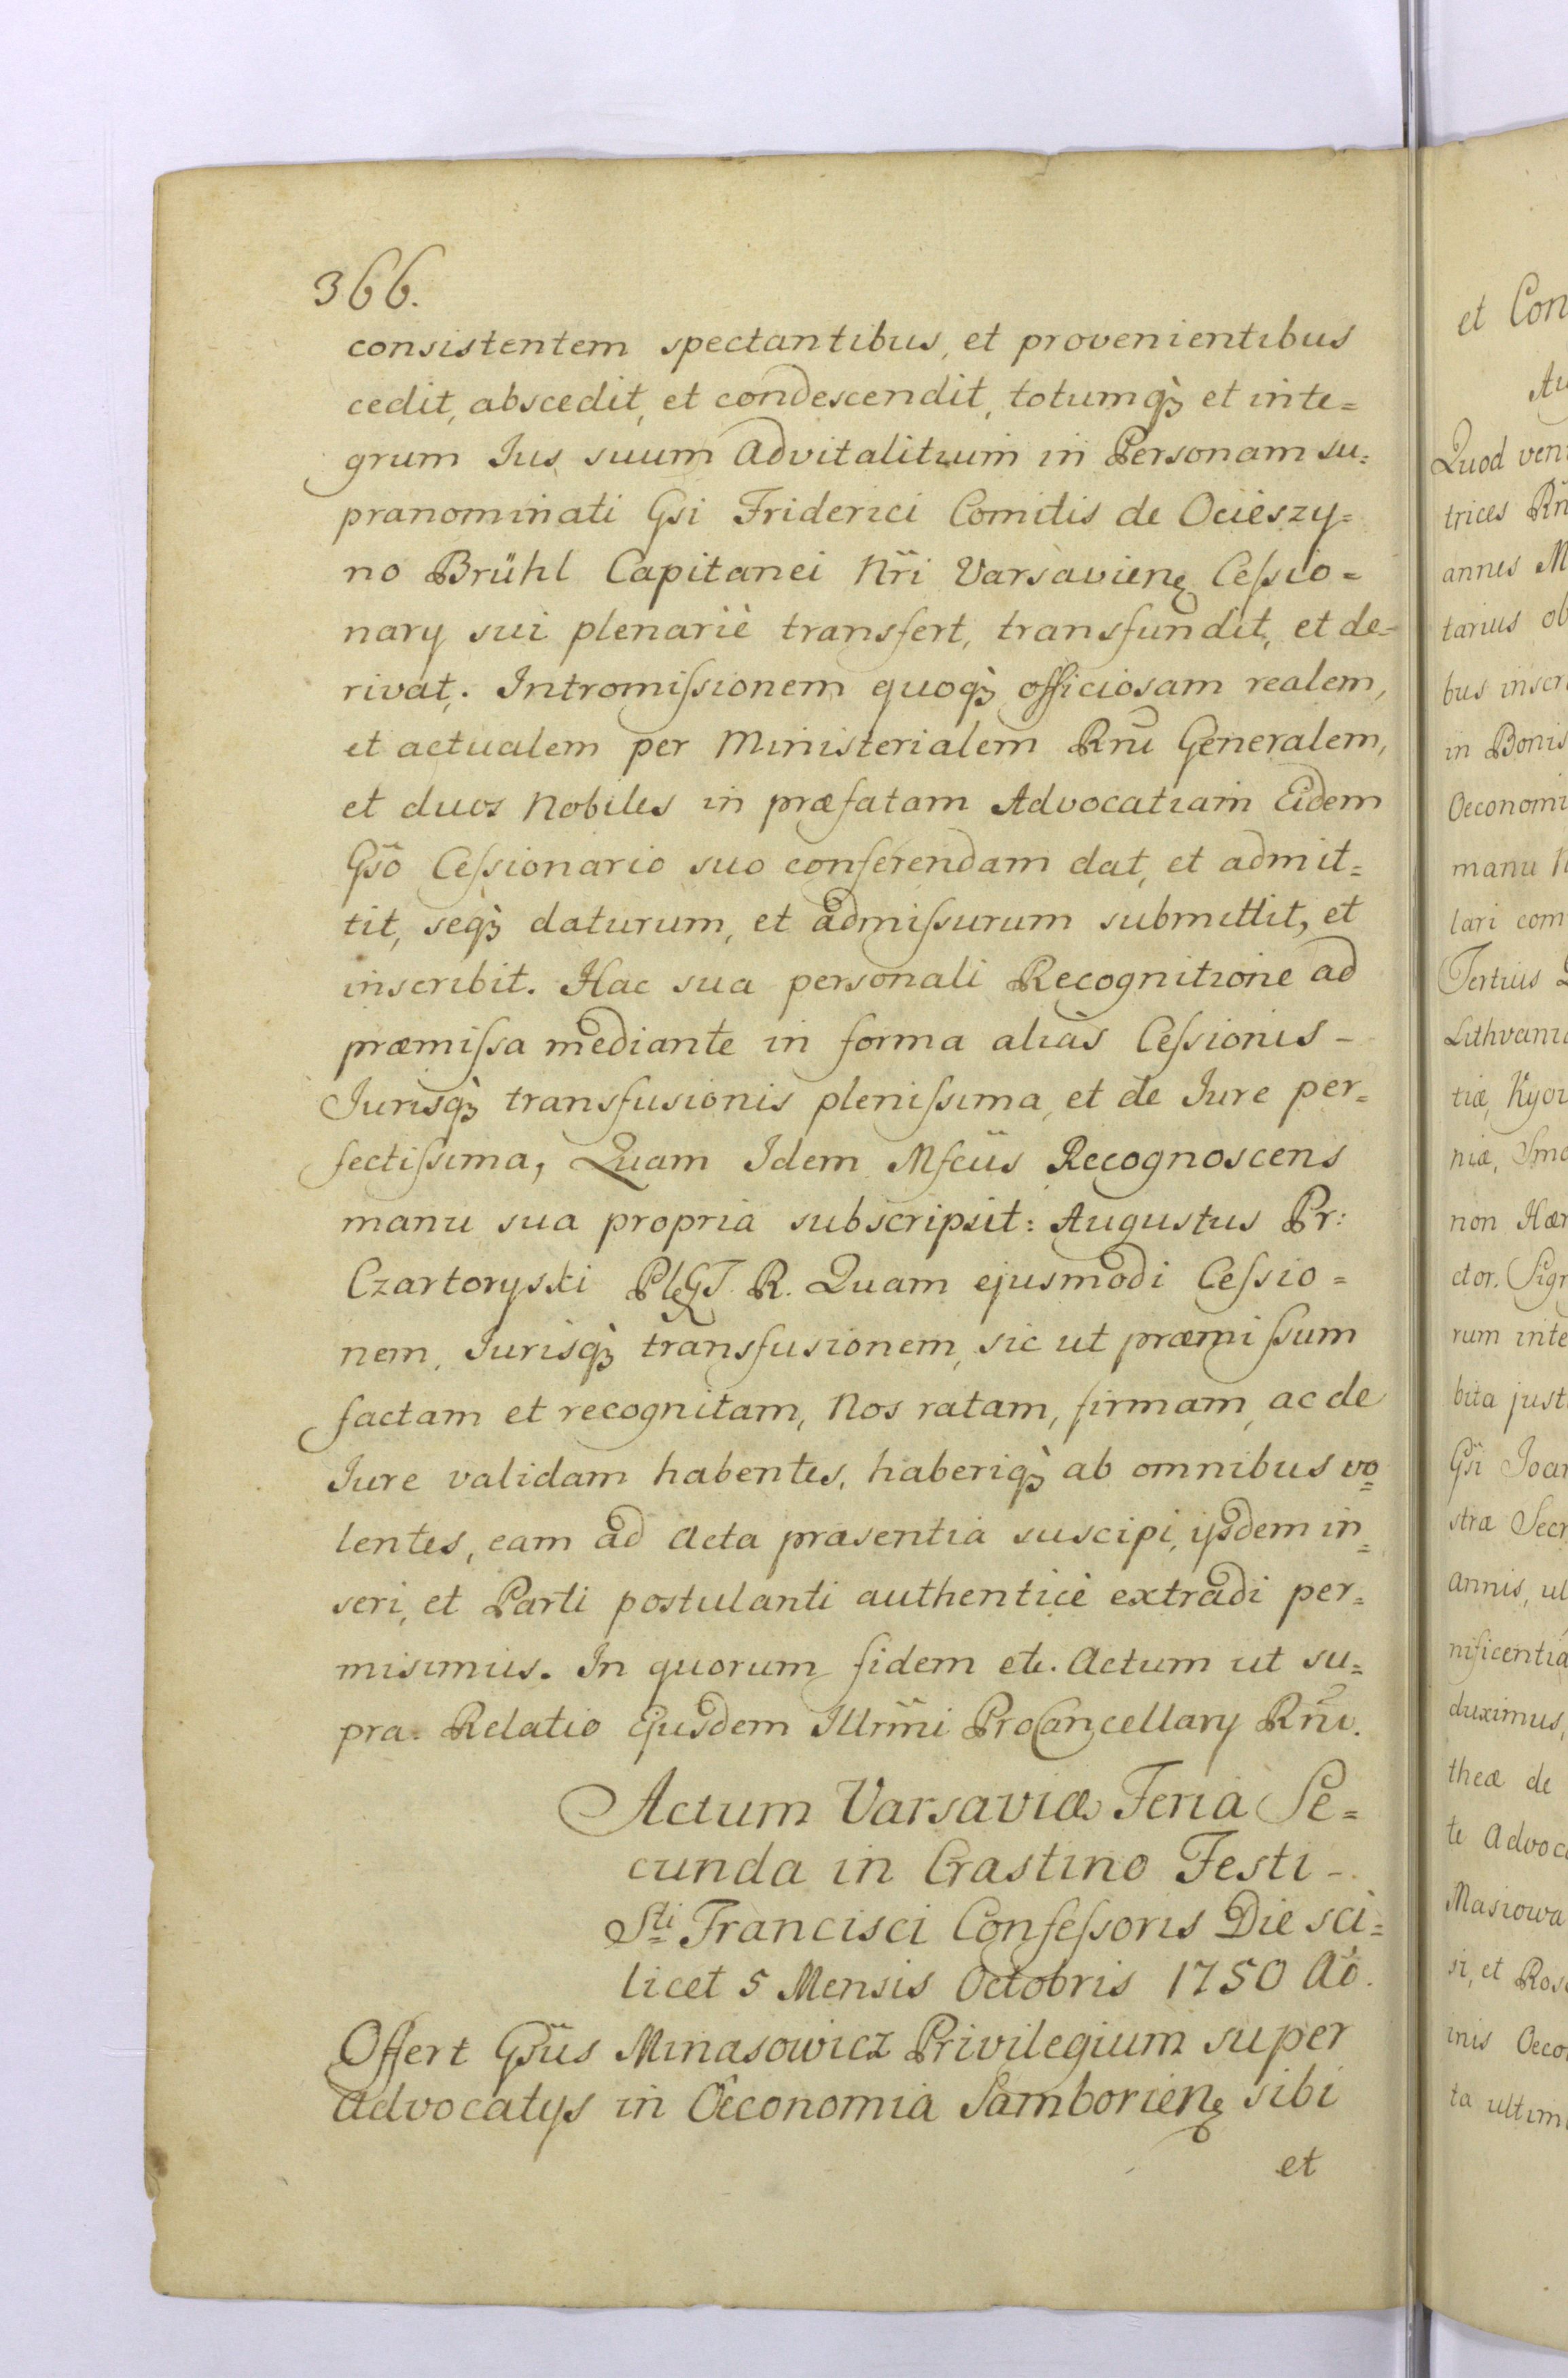 366.
consistentem spectantibus, et provenientibus
cedit, abscedit, et condescendit, totumqꝫ et inte=
grum Jus suum Advitalitium in Personam su=
pranominati Gsi Friderici Comitis de Ocieszy=
no Brühl Capitanei Nr̃i Varsavienꝭ Ceſsio=
nary sui plenariè transfert, transfundit, et de=
rivat. Intromiſsionem quoqꝫ officiosam realem,
et actualem per Ministerialem Rñi Generalem,
et duos Nobiles in præfatam Advocatiam Eidem
Gsõ Ceſsionario suo conferendam dat, et admit=
tit, seqꝫ daturum, et admiſsurum submittit, et
inscribit. Hac sua personali Recognitione ad
præmiſsa mediante in forma aliàs Ceſsionis -
Jurisqꝫ transfusionis pleniſsima, et de Jure per=
fectiſsima, Quam Idem Mfcus Recognoscens
manu sua propria subscripsit: Augustus Pr:
Czartoryski PlęGT. R. Quam ejusmodi Ceſsio=
nem, Jurisqꝫ transfusionem, sic ut præmiſsum
factam et recognitam, Nos ratam, firmam, ac de
Jure validam habentes, haberiqꝫ ab omnibus vo=
lentes, eam ad Acta præsentia suscipi, ijsdem in=
seri, et Parti postulanti authenticè extradi per=
misimus. In quorum fidem etc. Actum ut su=
pra. Relatio Ejusdem Illrm̃i ProCancellary Rñi.
Actum Varsaviæ Feria Se=
cunda in Crastino Festi -
Sti Francisci Confeſsoris Die sci=
licet 5 Mensis Octobris 1750 Aõ.
Offert Gsũs Minasowicz Privilegium super
Advocatys in Oeconomia Samborienꝭ sibi
et
et Con
Au
Quod veni
trices Rñ
annes M
tarius ob
bus inscri
in Bonis
Oeconomi
manu N
lari com
Tertius
Lithvania
tiæ, Kyov
niæ, Smo
non Hær
ctor. Sign
rum inte
bita just
Gsi Joan
stræ Secr
annis, ut
nificentia
duximus,
theæ de
te Advoca
Masiowa
si, et Ros
inis Oeco
ta ultim